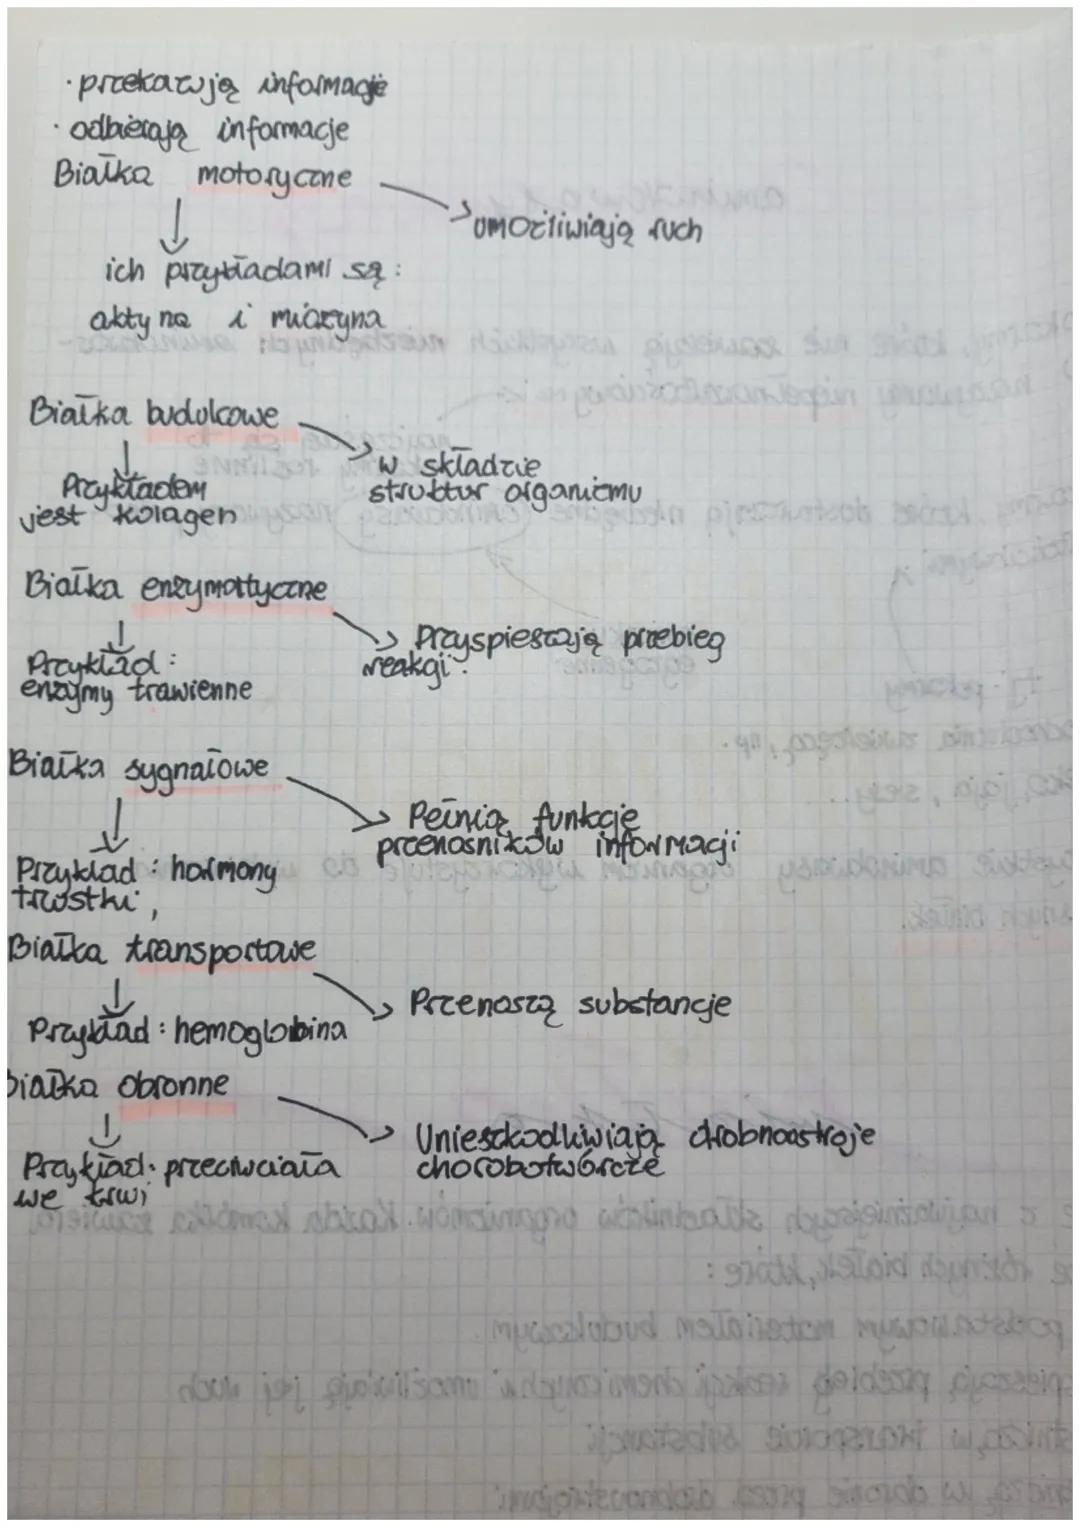 · przekazują informacje
· odbierają informacje
Białka motoryczne
umożliwiają ruch
ich przykładami są :
aktyna i miozyna
Białka budulcowe
w składzie
struktur organizmu
Przykładem
jest kolagen
Białka enzymatyczne
Przyspieszają przebieg
reakcji.
Przykład :
enzymy trawienne
Białka sygnałowe
Pełnią funkcję
przenośników informacji
Przykład : hormony
trzustki ,
Białka transportowe
Przenoszą substancje
Przykład : hemoglobina
Białka obronne
Unieszkodliwiają drobnoustroje
chorobotwórcze
Przykład: przeciwciała
we krwi